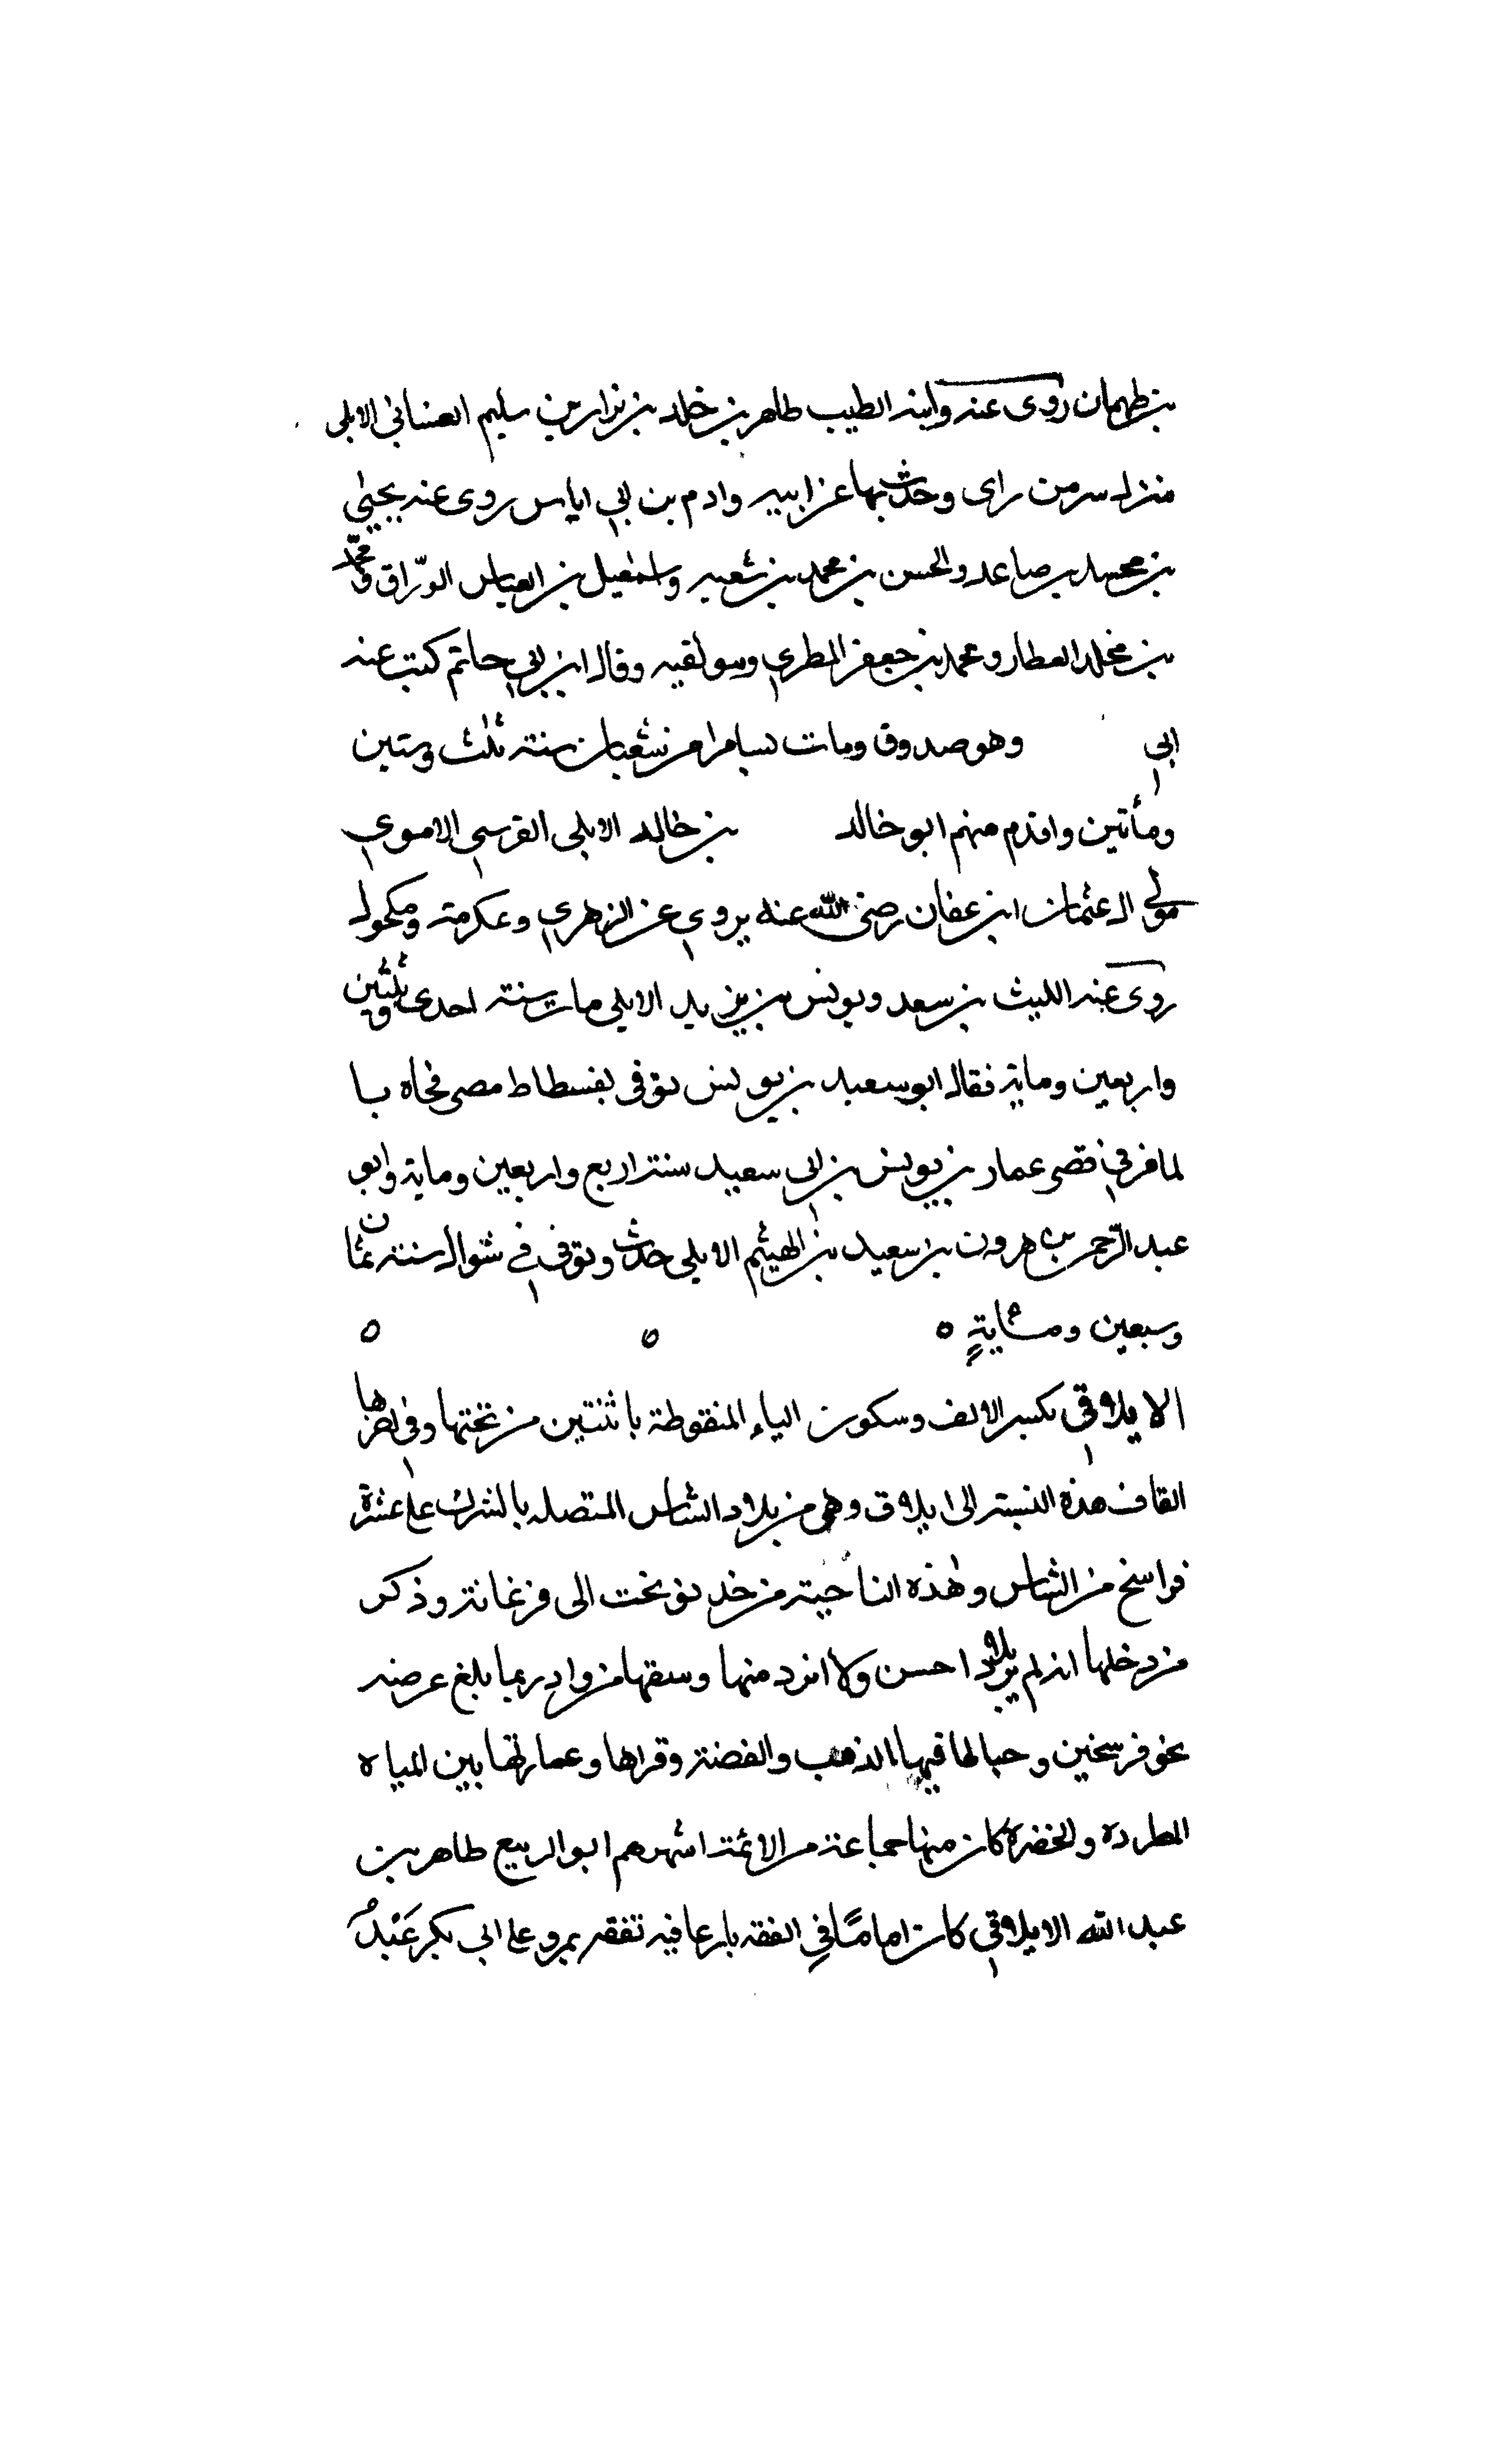 بن طهمان روى عنه وابنه الطيب طاهر بن خلد بن نزار بن سليم العساني الايلي
منزله سر من راى وحدث بها عن ابيه وادم بن ابي اياس روى عنه يحيى
بن محمد بن صاعد والحسن بن محمد بن شعبه واسمعيل بن العباس الورّاق ومحمّد
بن مخلد العطار ومحمد بن جعفر المطري وسو لقيه وقال ابن ابي حاتم كتب عنه
ابي وهو صدوق ومات بسامرا من شعبان سنة ثلث وستين
ومأتين واقدم منهم ابو خالد بن خالد الايلي القرسي الاموي
مولى ال عثمان ابن عفان رضى الله عنه يروي عن الزهري وعكرمة ومكحول
روى عنه الليث بن سعد ويونس بن يزيد الايلي مات سنة احدى وثلثين
واربعين ومايه فقال ابو سعيد بن يونس توفى بفسطاط مصر فجاه با
لمافر في قصر عمار بن يونس بن ابي سعيد سنة اربع واربعين وماية وابو
عبد الرّحمن بن هرون بن سعيد بن الهيثم الايلي حدث وتوفى في شوال سنة ثمان
وسبعين ومـاية ه ه ه
الايلاقي بكسر الالف وسكون الياء المنقوطة باثنتين من تحتها وفي اخرها
القاف هذه النسبة الى ايلاق وهي من بلاد الشاس المتصله بالترك على عشرة
فراسخ من الشاس وهذه الناحية من حد نوبخت الى فرغانة وذكر
من دخلها انه لم ير بلاد احسن ولا انزه منها وسقها من واد ربما بلغ عرضه
نحو فرسخين وجبالها فيها الذهب والفضة وقراها وعمارتها بين المياه
المطرده والخضرة كان منها جماعة من الائمة اشهرهم ابو الربيع طاهر بن
عبد الله الايلاقي كان اماماً في الفقه بارعا فيه تفقه بمرو على ابي بكر عَبْدُ